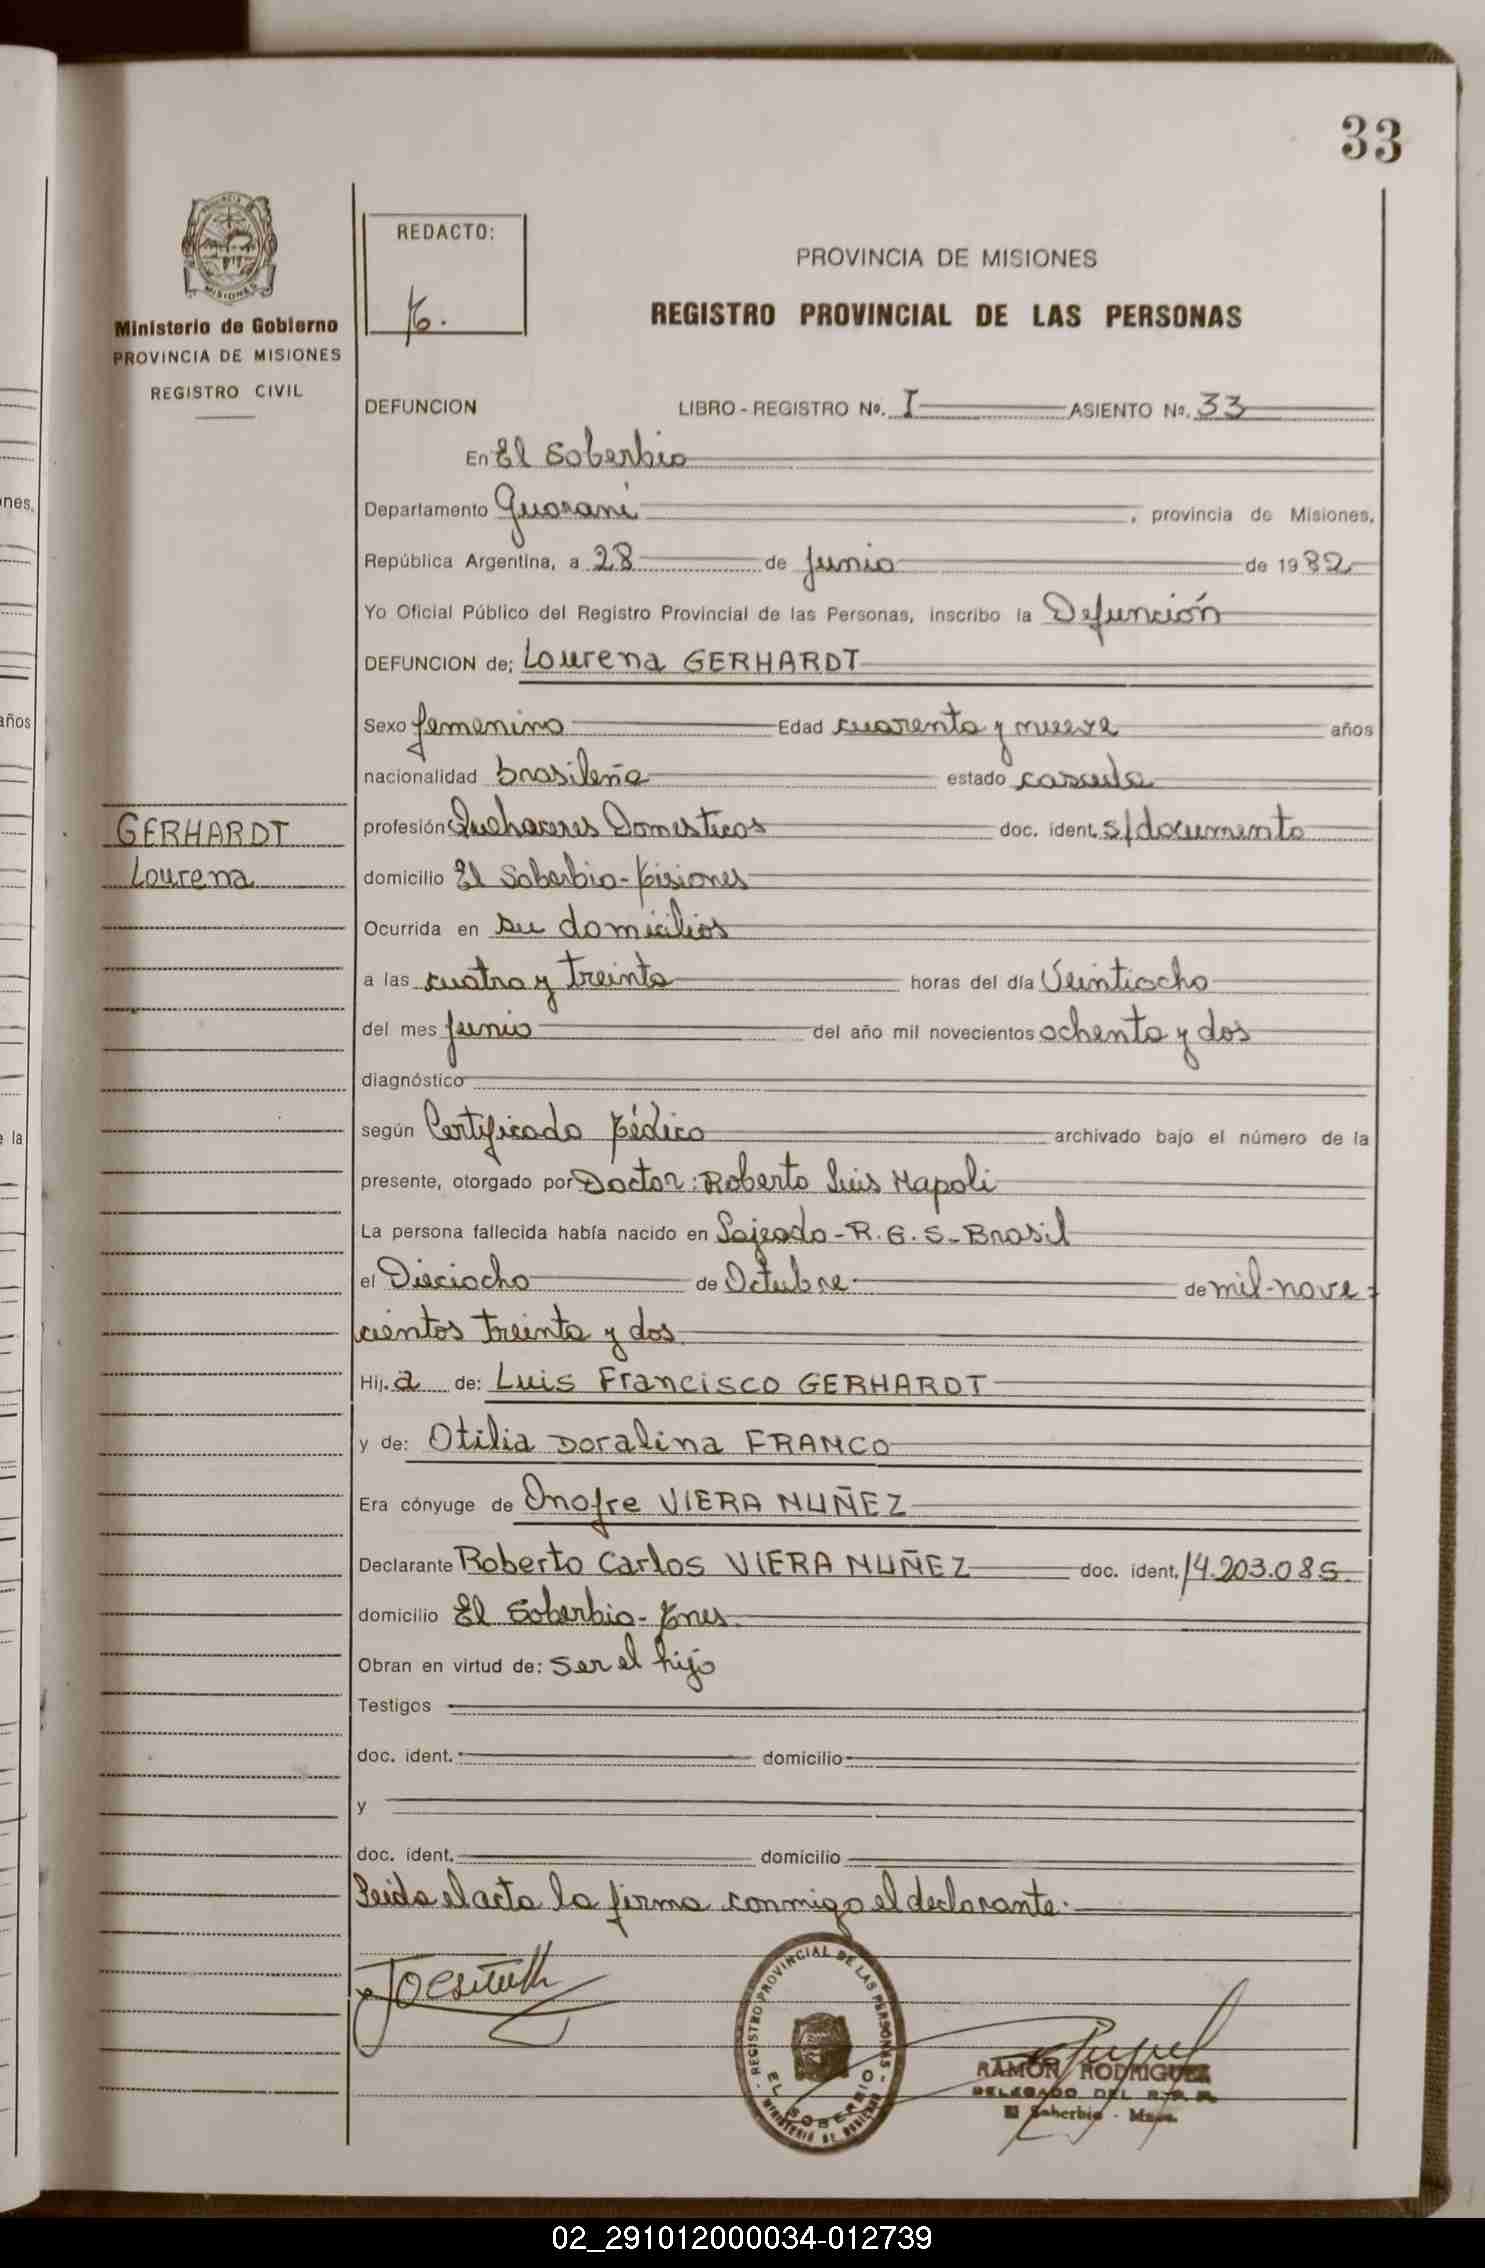 33
PROVINCIA DE MISIONES
Ministerio de Gobierno
PROVINCIA DE MISIONES
REGISTRO CIVIL
REDACTO:
PROVINCIA DE MISIONES
REGISTRO PROVINCIAL DE LAS PERSONAS
DEFUNCION LIBRO - REGISTRO Nº. I ASIENTO Nº. 33
En El Soberbio
Departamento Guarani , provincia de Misiones,
República Argentina, a 28 de Junio de 1982
Yo Oficial Público del Registro Provincial de las Personas, inscribo la Defunción
DEFUNCION de; Lourena GERHARDT
Sexo femenino Edad cuarenta y nueve años
nacionalidad brasileña estado casada
GERHARDT
Lourena
profesión Quehaceres Domesticos doc. ident. s/documento
domicilio El Soberbio - Misiones
Ocurrida en su domicilios
a las cuatro y treinta horas del día Veintiocho
del mes Junio del año mil novecientos ochenta y dos
diagnóstico
según Certificado Médico archivado bajo el número de la
presente, otorgado por Doctor: Roberto Luis Napoli
La persona fallecida había nacido en Lajeado - R. G. S. - Brasil
el Dieciocho de Octubre de mil-nove=
cientos treinta y dos
Hij.a de: Luis Francisco GERHARDT
y de: Otilia Doralina FRANCO
Era cónyuge de Onofre VIERA NUÑEZ
Declarante Roberto Carlos VIERA NUÑEZ doc. ident. 14.203.085
domicilio El Soberbio - Mnes.
Obran en virtud de: ser el hijo
Testigos
doc. ident. domicilio
y
doc. ident. domicilio
Leida el acta la firma conmigo el declarante.
REGISTRO PROVINCIAL DE LAS PERSONAS
EL SOBERBIO
RAMON RODRIGUEZ
DELEGADO DEL R.P.P.
El Soberbio - Mnes.
02_291012000034-012739